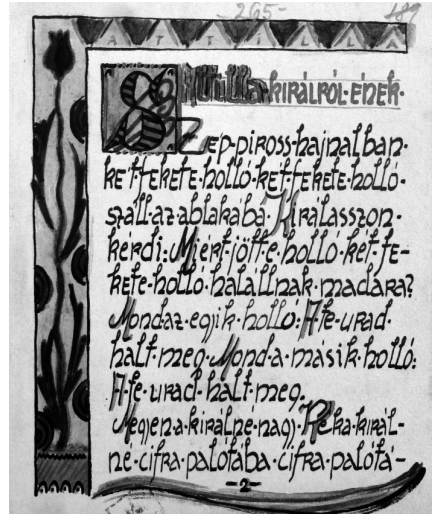 -265-
189
ATTILLA
Attilla·királról·ének·
Szép·piross·hajnalban·
két·fekete·holló·két·fekete·holló·
száll·az·ablakába·Királasszon·
kérdi:Miért·jötte·holló·két·fe-
kete·holló·halállnak·madara?
Mond·az·egjik·holló:A·te·urad·
halt·meg·Mond·a·másik·holló:
A·te·urad·halt·meg.
Megjen·a·királné·nagj·Réka·királ-
né·cifra·palótába·cifra·palótá-
-2-